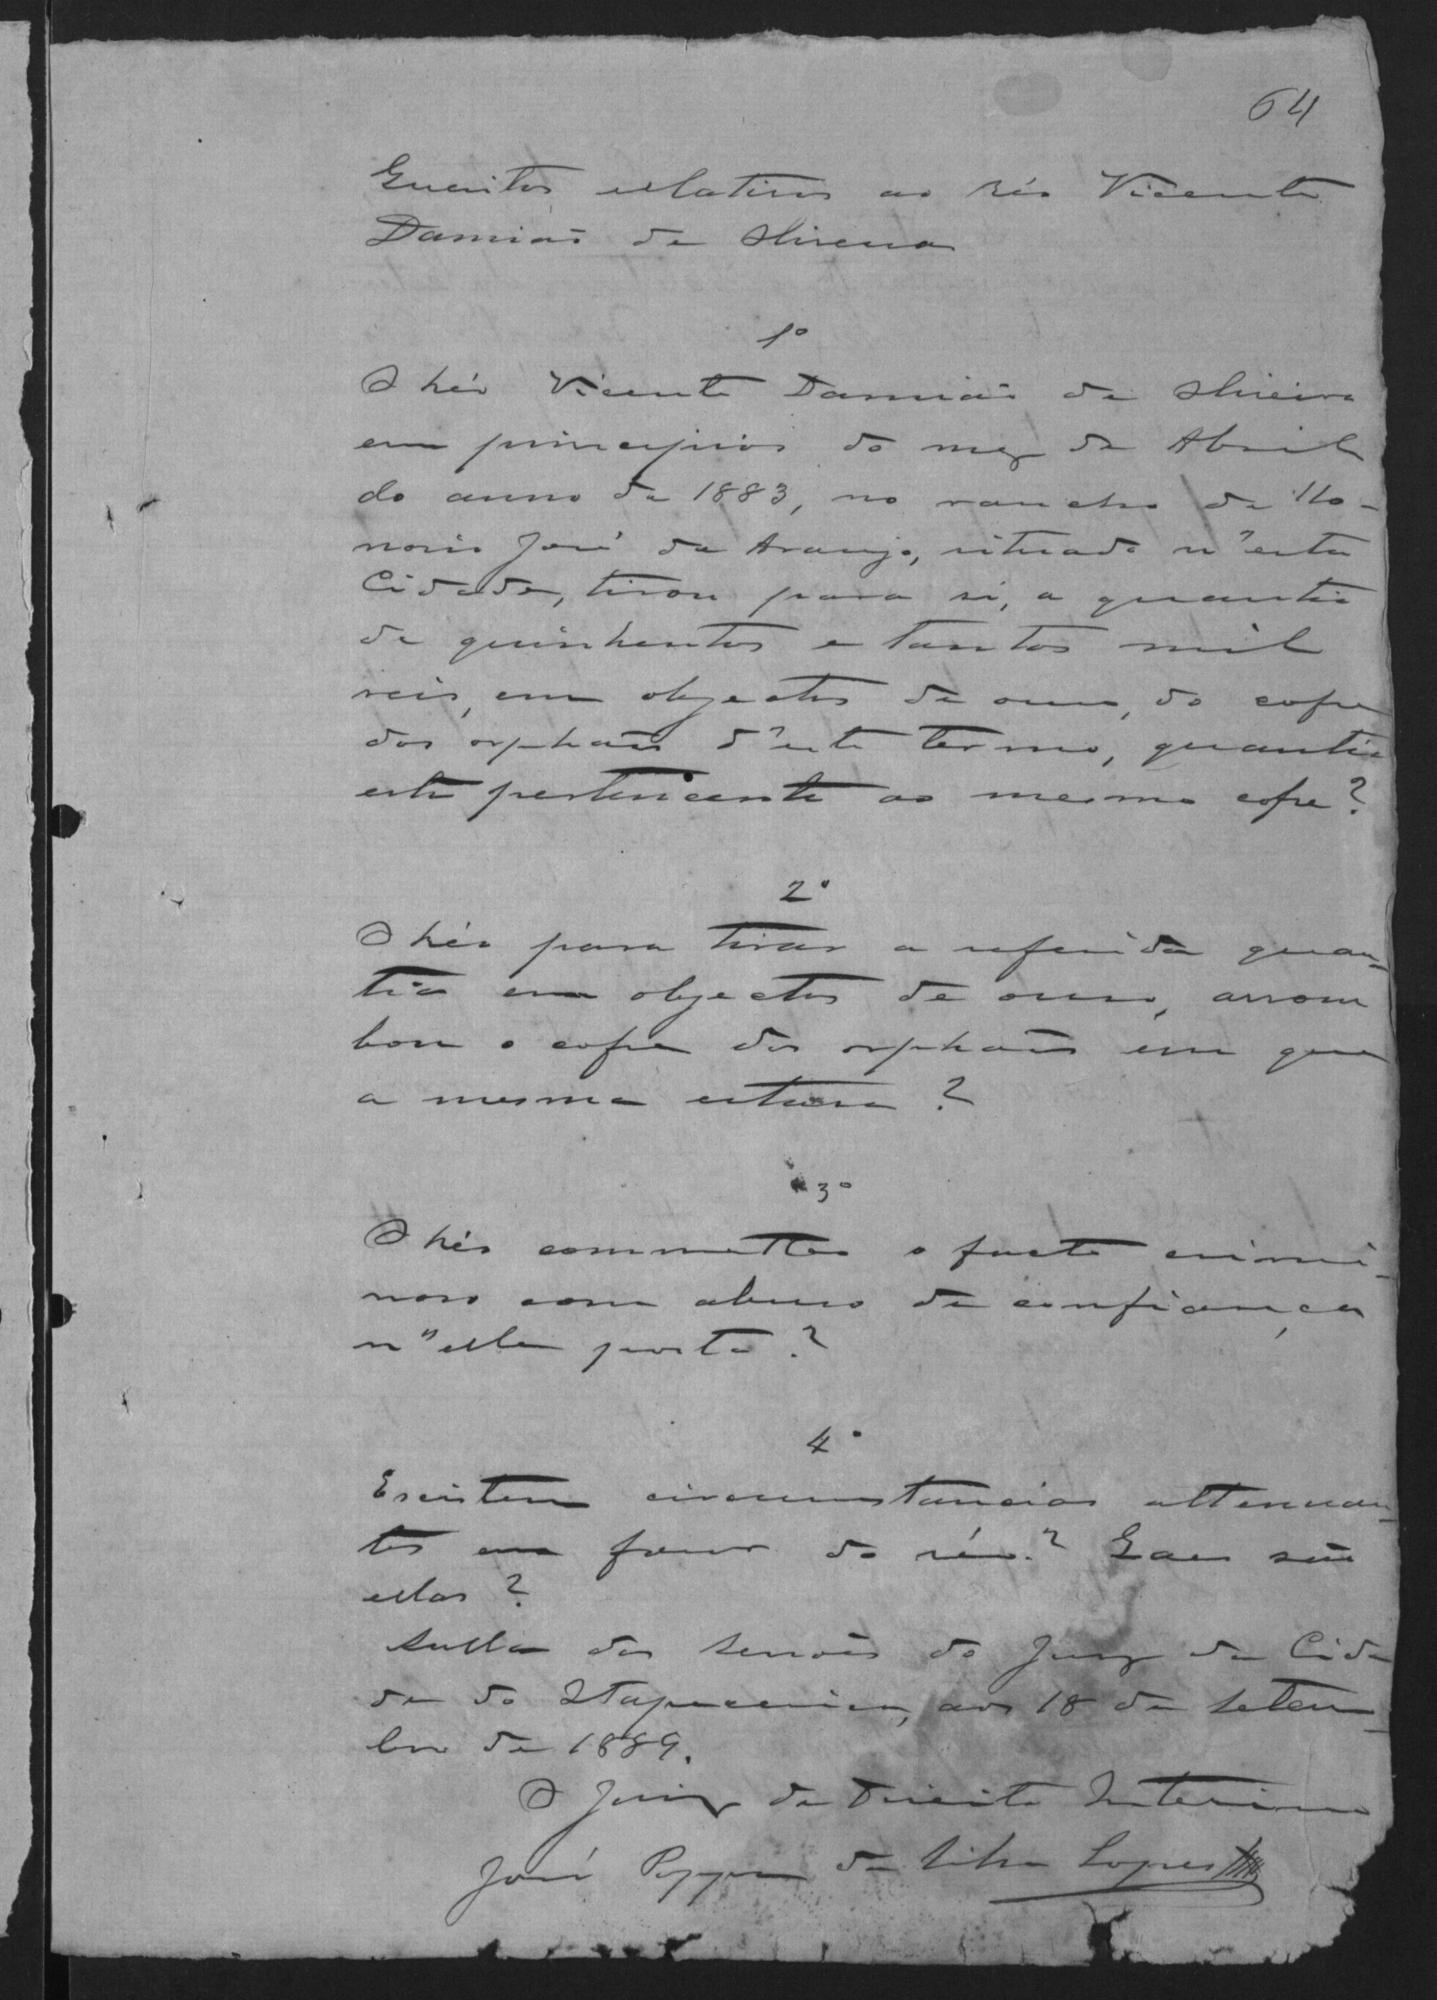 64
Quesitos relativos ao réo Vicente
Damião de Oliveira
1º
O réo Vicente Damião de Oliveira
em principios do mez de Abril
do anno de 1883, no rancho de Ho-
norio José de Araujo, situado n'esta
Cidade, tirou para si, a quantia
de quinhentos e tantos mil
reis, em objectos de ouro, do cofre
dos orphãos d'este termo, quantia
esta pertencente ao mesmo cofre?
2º
O réo para tirar a referida quan-
tia em objectos de ouro, arrom
bou o cofre dos orphãos em que
a mesma estava?
3º
O réo commetteo o facto crimi-
noso com abuso de confiança
n'elle posta?
4º
Existem circumstancias attenuan-
tes em favor do réo? Quaes são
ellas?
Salla das sessões do Jury da Cida-
de do Itapecerica, aos 18 de Setem-
bro de 1889.
O Juiz de Direito Interino
José da Silva Lopes